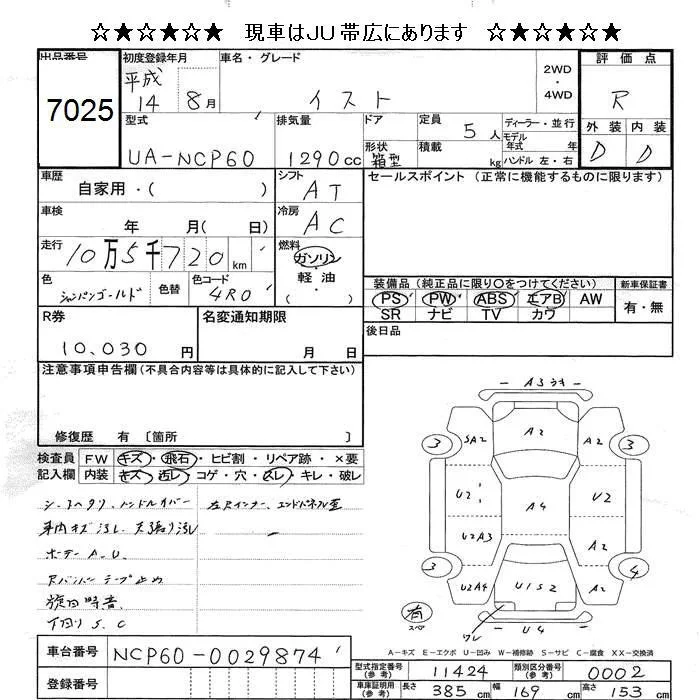 ☆★☆★☆★ 現車はJU帯広にあります ☆★☆★☆★
出品番号 初度登録年月 車名・グレード 2WD・4WD 評価点
7025 平成14 8月 イスト R
型式 排気量 ドア 定員 5人 ディーラー・並行 外装 内装
モデル年式 年式
UA-NCP60 1290cc 形状 箱型 積載 kg ハンドル 左・右 D D
車歴 シフト セールスポイント(正常に機能するものに限ります)
自家用・( ) AT
車検 冷房
年 月( 日) AC
走行 燃料
10万5千720km ガソリン
色 色替 色コード 軽・油
シャンパンゴールド 4R0 ( )
装備品(純正品に限り○をつけてください) 新車保証書
PS PW ABS エアB AW 有・無
SR ナビ TV カワ
R券 名変通知期限 後日品
10,030円 月 日
注意事項申告欄(不具合内容等は具体的に記入して下さい)
修復歴 有 〔箇所 〕
検査員 FW キズ・飛石・ヒビ割・リペア跡・×要
記入欄 内装 キズ・汚レ・コゲ・穴・スレ・キレ・破レ
シートヘタリ、ハンドルカバー 左Rインナー、エンドパネル歪
車内キズ汚レ、天張り汚レ
ボデーA、U
Rバンパーテープ止め
旋回時音
下回りS、C
A3
SA2 A2 3 3
U2 A4 U2
U2A3 A2
3 4
U2A4 U1S2 A2
ワレ U4
有 スペア
A-キズ E-エクボ U-凹み W-補修跡 S-サビ C-腐食 XX-交換済
車台番号 NCP60-0029874
登録番号
型式指定番号(参考) 11424 類別区分番号(参考) 0002
車庫証明用(参考) 長さ 385cm 幅 169cm 高さ 153cm